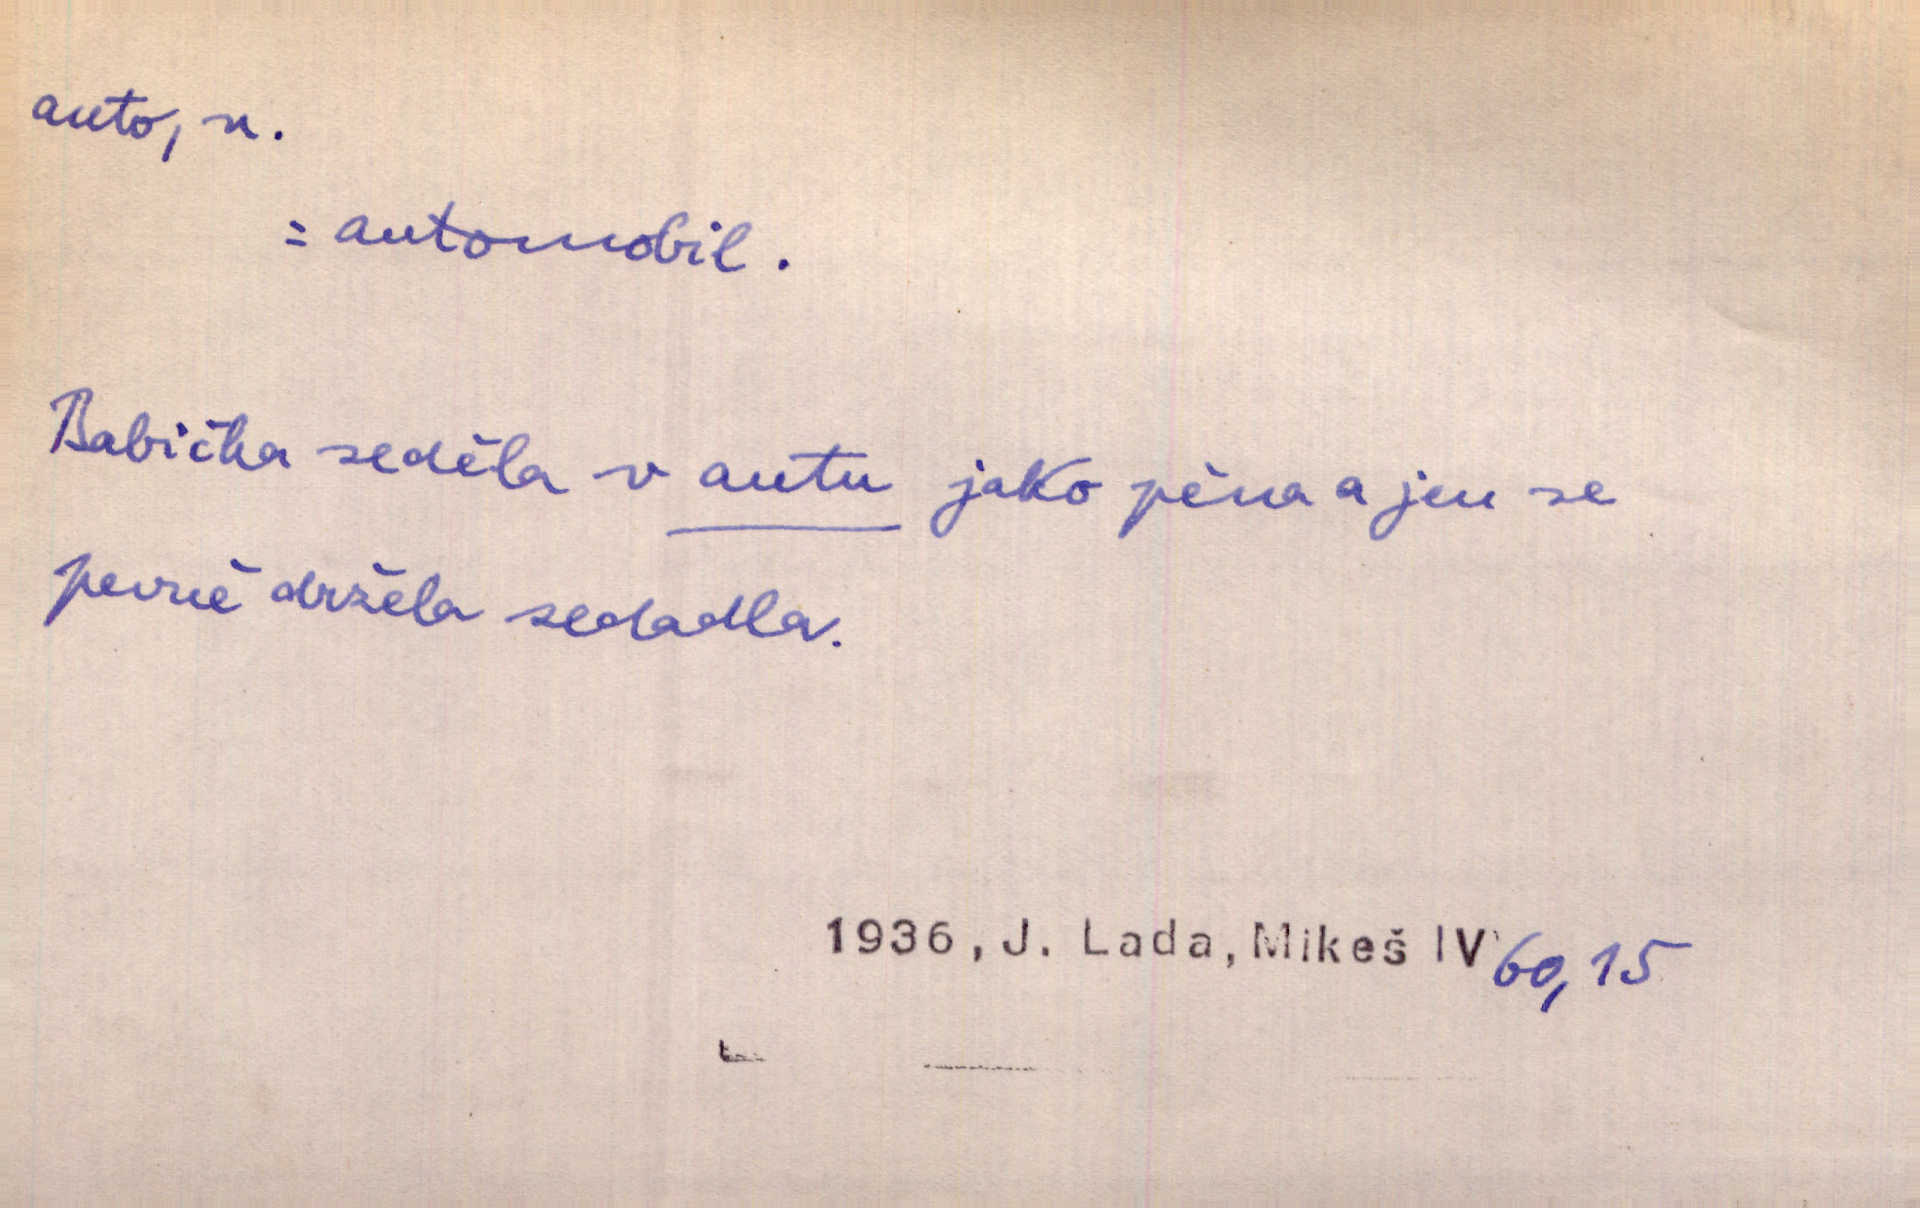 auto, n.
= automobil.
Babička seděla v autu jako pěna a jen se
pevně držela sedadla.
1936, J. Lada, Mikeš IV 60,15